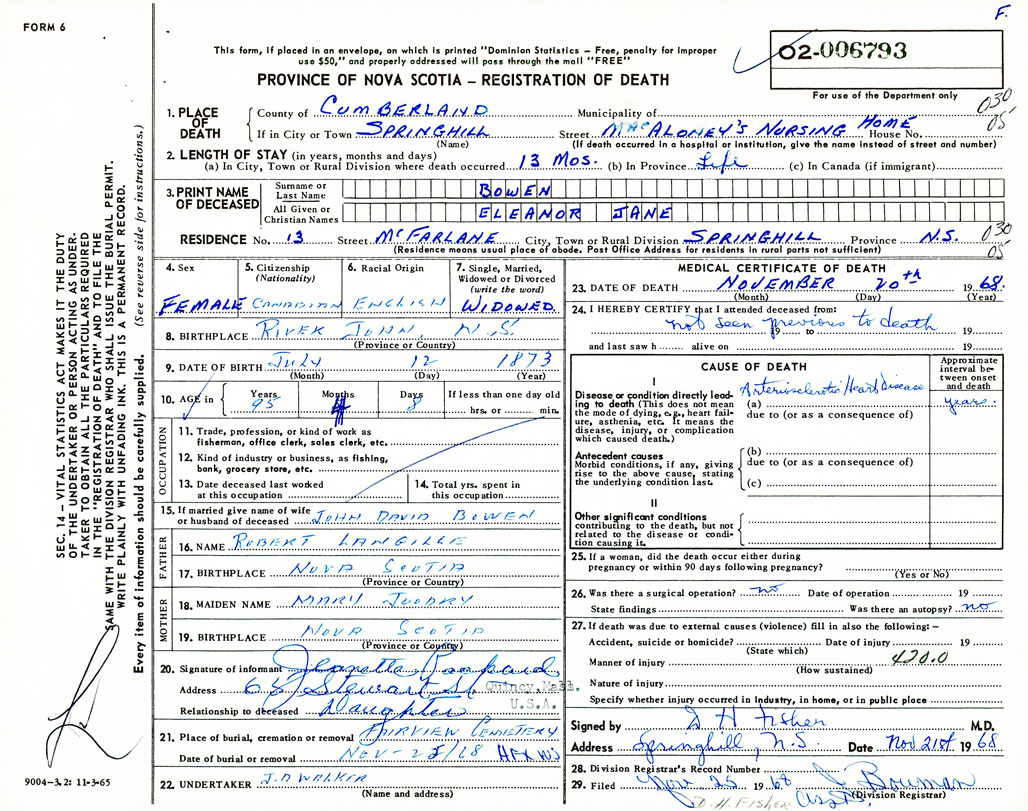 F.
FORM 6
This form, if placed in an envelope, on which is printed "Dominion Statistics – Free, penalty for improper
use $50," and properly addressed will pass through the mail "FREE"
02-006793
PROVINCE OF NOVA SCOTIA – REGISTRATION OF DEATH
For use of the Department only
030
05
1. PLACE OF DEATH
County of CUMBERLAND Municipality of
If in City or Town SPRINGHILL Street MacALONEY'S NURSING HOME House No.
(Name) (If death occurred in a hospital or institution, give the name instead of street and number)
2. LENGTH OF STAY (in years, months and days)
(a) In City, Town or Rural Division where death occurred 13 MOS. (b) In Province Life (c) In Canada (if immigrant)
3. PRINT NAME OF DECEASED
Surname or Last Name BOWEN
All Given or Christian Names ELEANOR JANE
RESIDENCE No. 13 Street McFARLANE City, Town or Rural Division SPRINGHILL Province N.S. 030
(Residence means usual place of abode. Post Office Address for residents in rural parts not sufficient) 05
4. Sex FEMALE
5. Citizenship (Nationality) CANADIAN
6. Racial Origin ENGLISH
7. Single, Married, Widowed or Divorced (write the word) WIDOWED
8. BIRTHPLACE RIVER JOHN, N.S.
(Province or Country)
9. DATE OF BIRTH July 12 1873
(Month) (Day) (Year)
10. AGE in Years 95 Months 4 Days 8 If less than one day old
hrs. or min.
OCCUPATION
11. Trade, profession, or kind of work as
fisherman, office clerk, sales clerk, etc.
12. Kind of industry or business, as fishing,
bank, grocery store, etc.
13. Date deceased last worked
at this occupation
14. Total yrs. spent in
this occupation
15. If married give name of wife
or husband of deceased JOHN DAVID BOWEN
FATHER
16. NAME ROBERT LANGILLE
17. BIRTHPLACE NOVA SCOTIA
(Province or Country)
MOTHER
18. MAIDEN NAME MARY JOUDRY
19. BIRTHPLACE NOVA SCOTIA
(Province or Country)
20. Signature of informant Jeanetta
Address 65 Stewart St. Quincy, Mass.
U.S.A.
Relationship to deceased Daughter
21. Place of burial, cremation or removal FAIRVIEW CEMETERY
Date of burial or removal NOV – 23/68 HFX NS
22. UNDERTAKER J.D WALKER
(Name and address)
MEDICAL CERTIFICATE OF DEATH
23. DATE OF DEATH NOVEMBER 20th 1968.
(Month) (Day) (Year)
24. I HEREBY CERTIFY that I attended deceased from:
not seen previous to death
19 to 19
and last saw h alive on 19
CAUSE OF DEATH
Approximate interval between onset and death
I
Disease or condition directly leading
to death (This does not mean
the mode of dying, e.g., heart failure,
asthenia, etc. It means the
disease, injury, or complication
which caused death.)
(a) Arteriosclerotic Heart Disease years.
due to (or as a consequence of)
Antecedent causes
Morbid conditions, if any, giving
rise to the above cause, stating
the underlying condition last.
(b)
due to (or as a consequence of)
(c)
II
Other significant conditions
contributing to the death, but not
related to the disease or condition
causing it.
25. If a woman, did the death occur either during
pregnancy or within 90 days following pregnancy?
(Yes or No)
26. Was there a surgical operation? no Date of operation 19
State findings Was there an autopsy? no
27. If death was due to external causes (violence) fill in also the following: –
Accident, suicide or homicide? Date of injury 19
(State which)
Manner of injury 420.0
(How sustained)
Nature of injury
Specify whether injury occurred in industry, in home, or in public place
Signed by D H Fisher M.D.
Address Springhill, N.S. Date Nov 21st 1968
28. Division Registrar's Record Number
29. Filed Nov 25 1968 J. Bowman
D.H. FISHER (Division Registrar)
SEC. 14 – VITAL STATISTICS ACT MAKES IT THE DUTY
OF THE UNDERTAKER OR PERSON ACTING AS UNDERTAKER
TO OBTAIN ALL THE PARTICULARS REQUIRED
IN THE "REGISTRATION OF DEATH" AND TO FILE THE
SAME WITH THE DIVISION REGISTRAR WHO SHALL ISSUE THE BURIAL PERMIT.
WRITE PLAINLY WITH UNFADING INK. THIS IS A PERMANENT RECORD.
Every item of information should be carefully supplied. (See reverse side for instructions.)
9004-3.2: 11-3-65